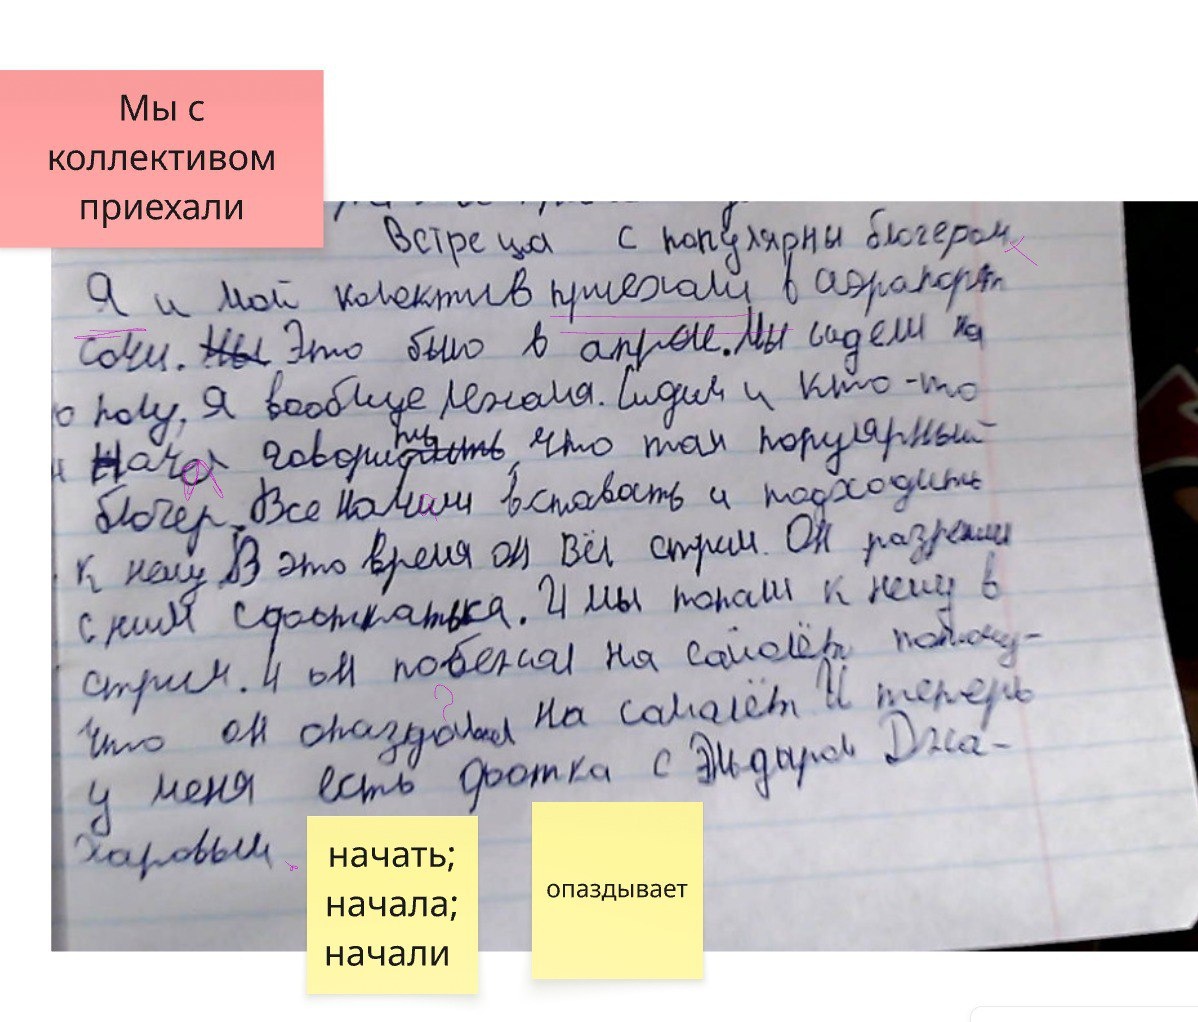 Мы с
коллективом
приехали
Встреца с популярны блогером
Я и мой колектив приехали в аэрапорт
Сочи. Это было в апреле. Мы сидели на
полу, Я вообще лежала. Сидим и кто-то
Начол говорить что там популярный
блогер. Все начили вставать и подходить
к нему В это время он вёл стрим. Он разрешил
с ним сфоткатька. И мы попали к нему в
стрим. И он побежал на самолёт потому-
что он опаздовал на самалёт И теперь
у меня есть фотка с Эльдаром Джа-
харовым
начать;
начала;
начали
опаздывает